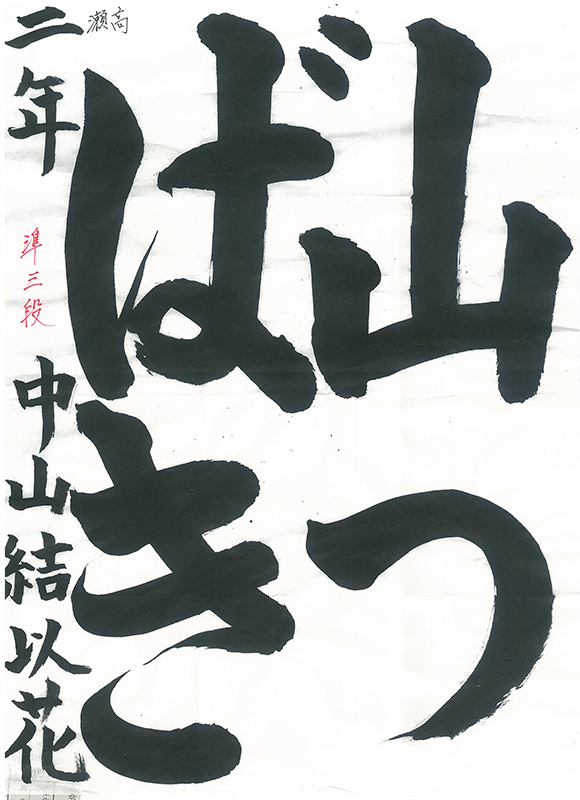 山つ
ばき
高瀬
二年 準三段 中山結以花